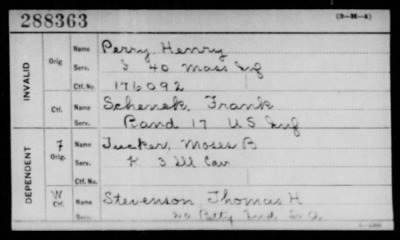 288363
(3-H-4)
INVALID
Orig
Name Perry Henry
Serv. I 40 Mass Inf
Ctf. No. 176092
Ctf.
Name Schenek, Frank
Serv. Band 17 US Inf
DEPENDENT
F
Orig.
Name Tucker, Moses B
Serv. K 3 Ill Cav
Ctf. No.
W
Ctf.
Name Stevenson Thomas H
Serv. Batty Ind